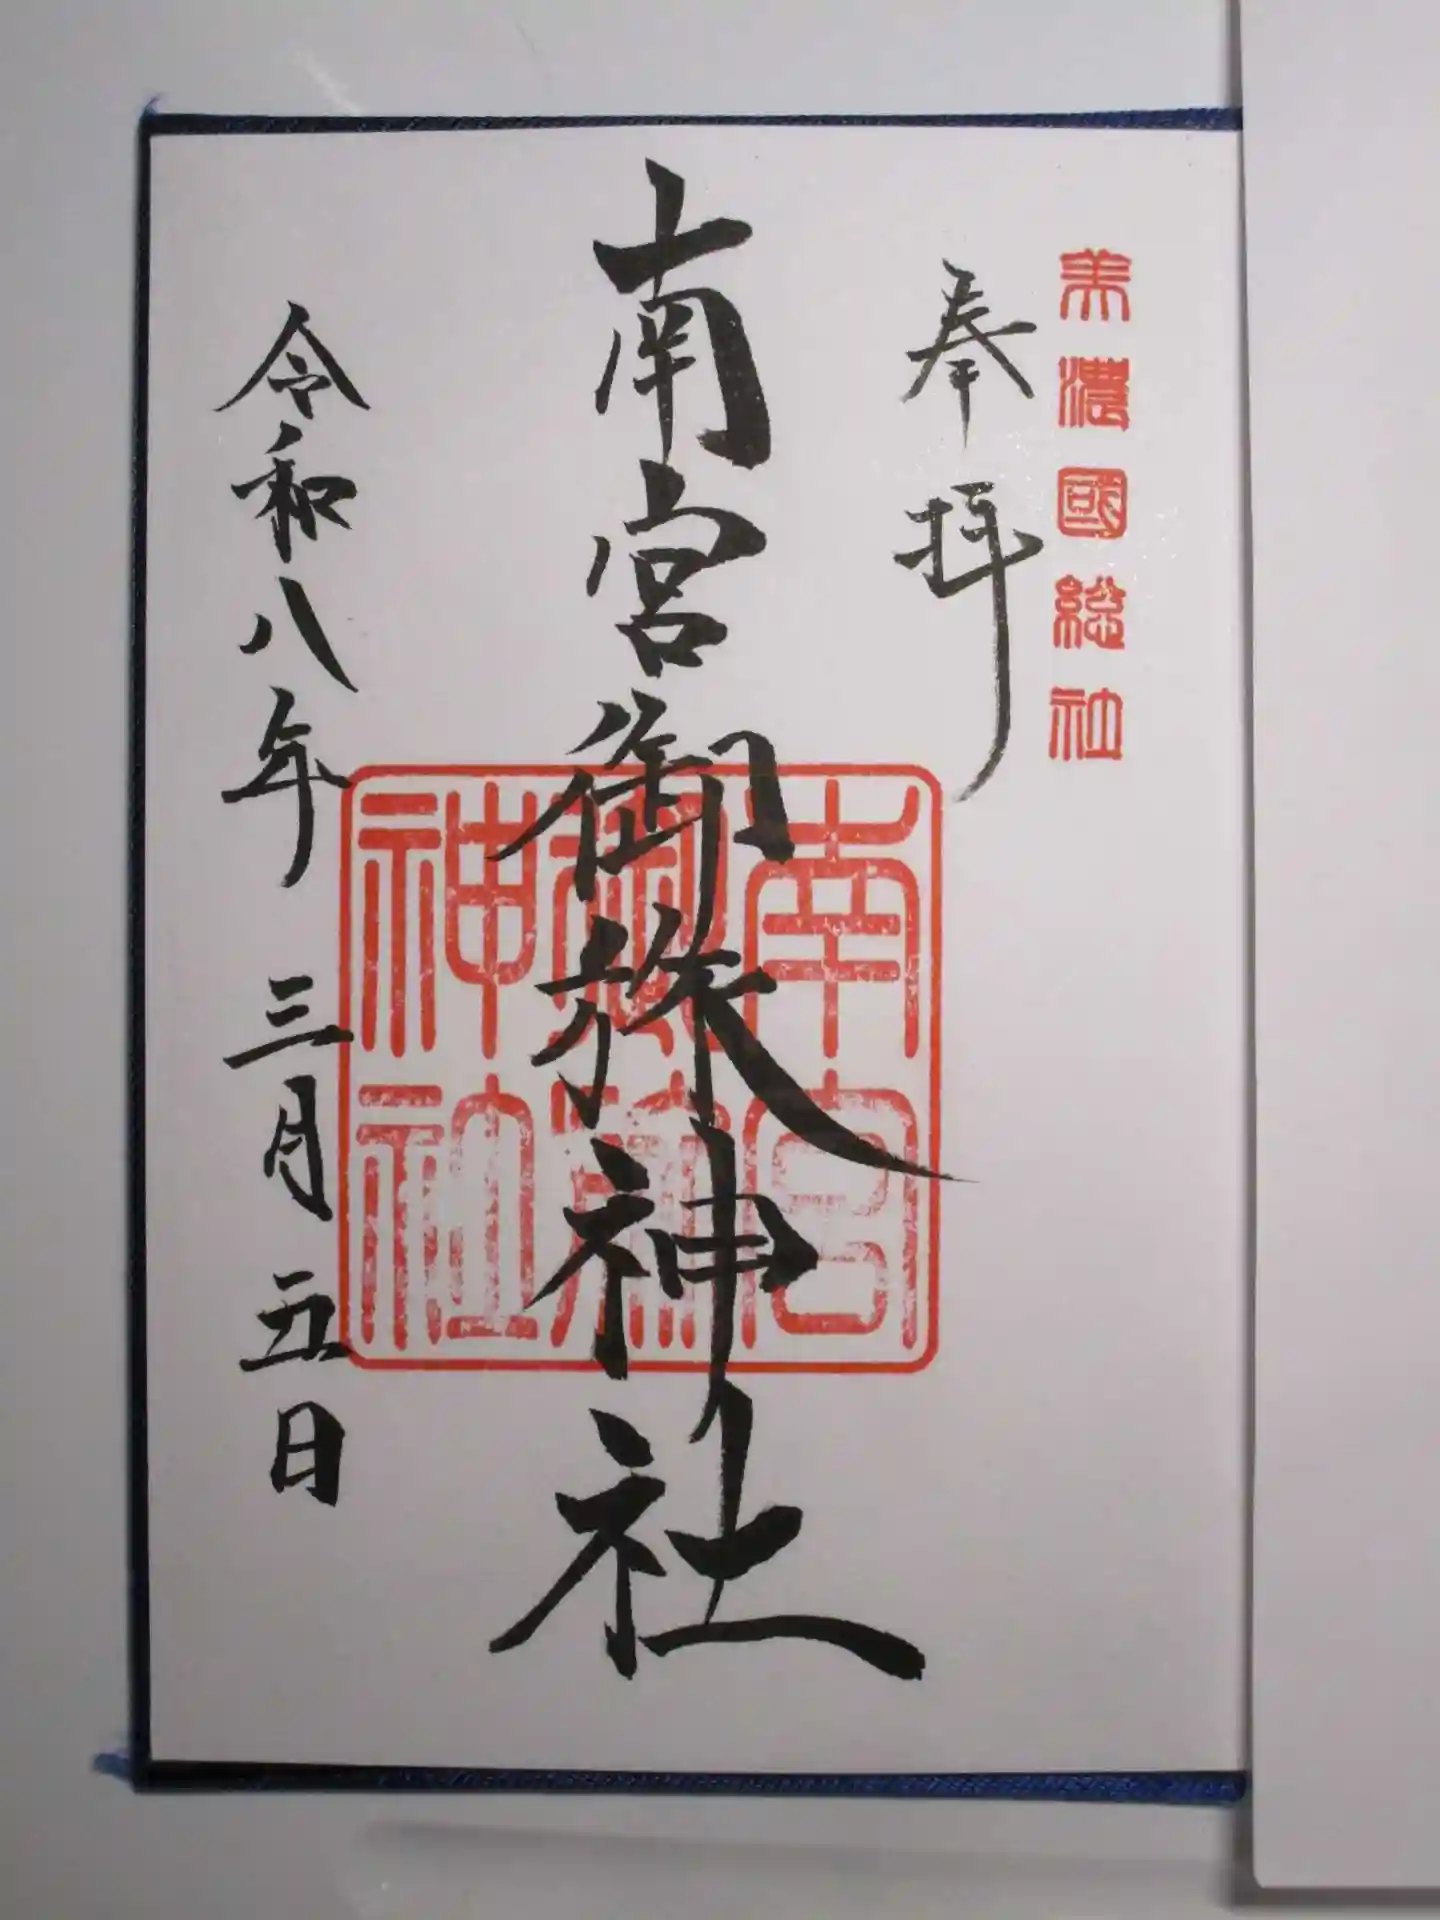 美濃國総社
奉拝
南宮御旅神社
南宮
御旅
神社
令和八年 三月五日